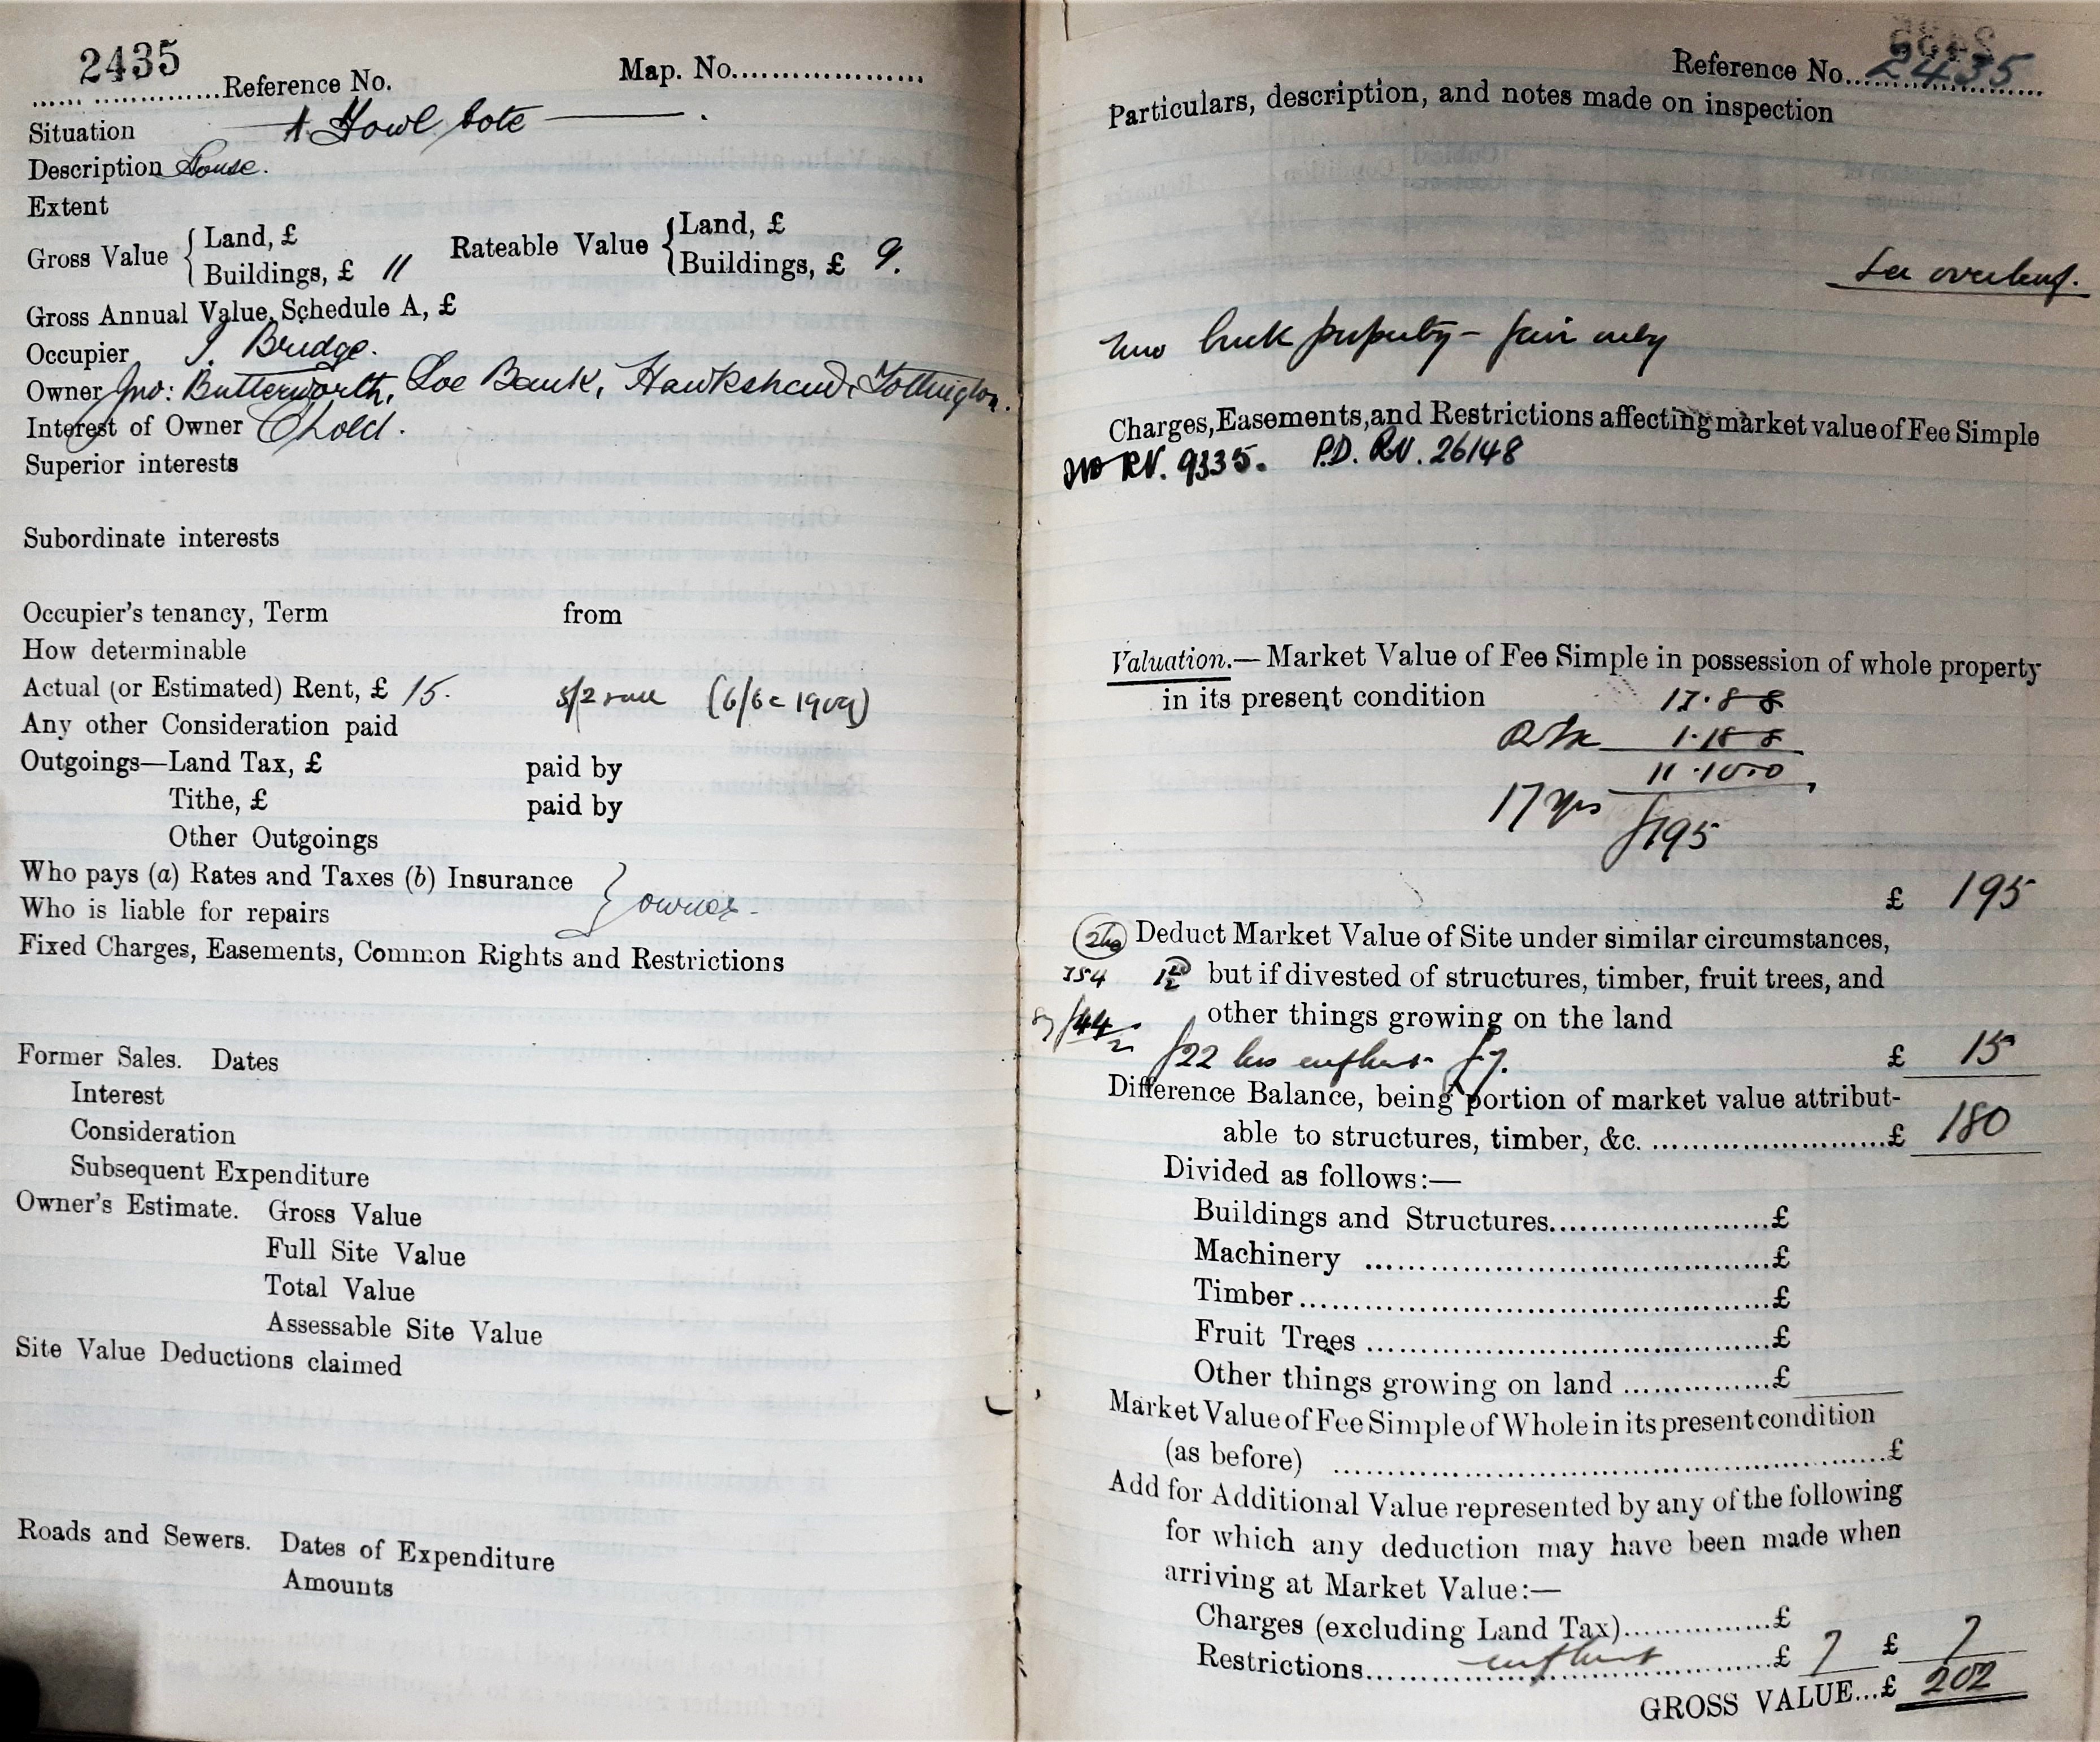 2435
Reference No. Map. No.
Situation 1 Fowl Cote
Description House.
Extent
Gross Value { Land, £
Buildings, £ 11
Rateable Value { Land, £
Buildings, £ 9.
Gross Annual Value, Schedule A, £
Occupier J. Bridge.
Owner Jno: Butterworth, Loe Bank, Hawkshaw, Tottington.
Interest of Owner Chold.
Superior interests
Subordinate interests
Occupier's tenancy, Term from
How determinable
Actual (or Estimated) Rent, £ 15. (6/6 1909)
Any other Consideration paid
Outgoings—Land Tax, £ paid by
Tithe, £ paid by
Other Outgoings
Who pays (a) Rates and Taxes (b) Insurance } owner
Who is liable for repairs
Fixed Charges, Easements, Common Rights and Restrictions
Former Sales. Dates
Interest
Consideration
Subsequent Expenditure
Owner's Estimate. Gross Value
Full Site Value
Total Value
Assessable Site Value
Site Value Deductions claimed
Roads and Sewers. Dates of Expenditure
Amounts
Reference No. 2435
Particulars, description, and notes made on inspection
See overleaf.
brick property – fair only
Charges, Easements, and Restrictions affecting market value of Fee Simple
RV. 9335. P.D. RV. 26148
Valuation.— Market Value of Fee Simple in possession of whole property
in its present condition 13.8 8
1.18 8
11.10.0
17 yrs £195
£ 195
Deduct Market Value of Site under similar circumstances,
354 but if divested of structures, timber, fruit trees, and
44 other things growing on the land
£22 less enfhmt £7. £ 15
Difference Balance, being portion of market value attribut-
able to structures, timber, &c. £ 180
Divided as follows:—
Buildings and Structures £
Machinery £
Timber £
Fruit Trees £
Other things growing on land £
Market Value of Fee Simple of Whole in its present condition
(as before) £
Add for Additional Value represented by any of the following
for which any deduction may have been made when
arriving at Market Value:—
Charges (excluding Land Tax) £
Restrictions enfhmt £ 7 £ 7
GROSS VALUE...£ 202